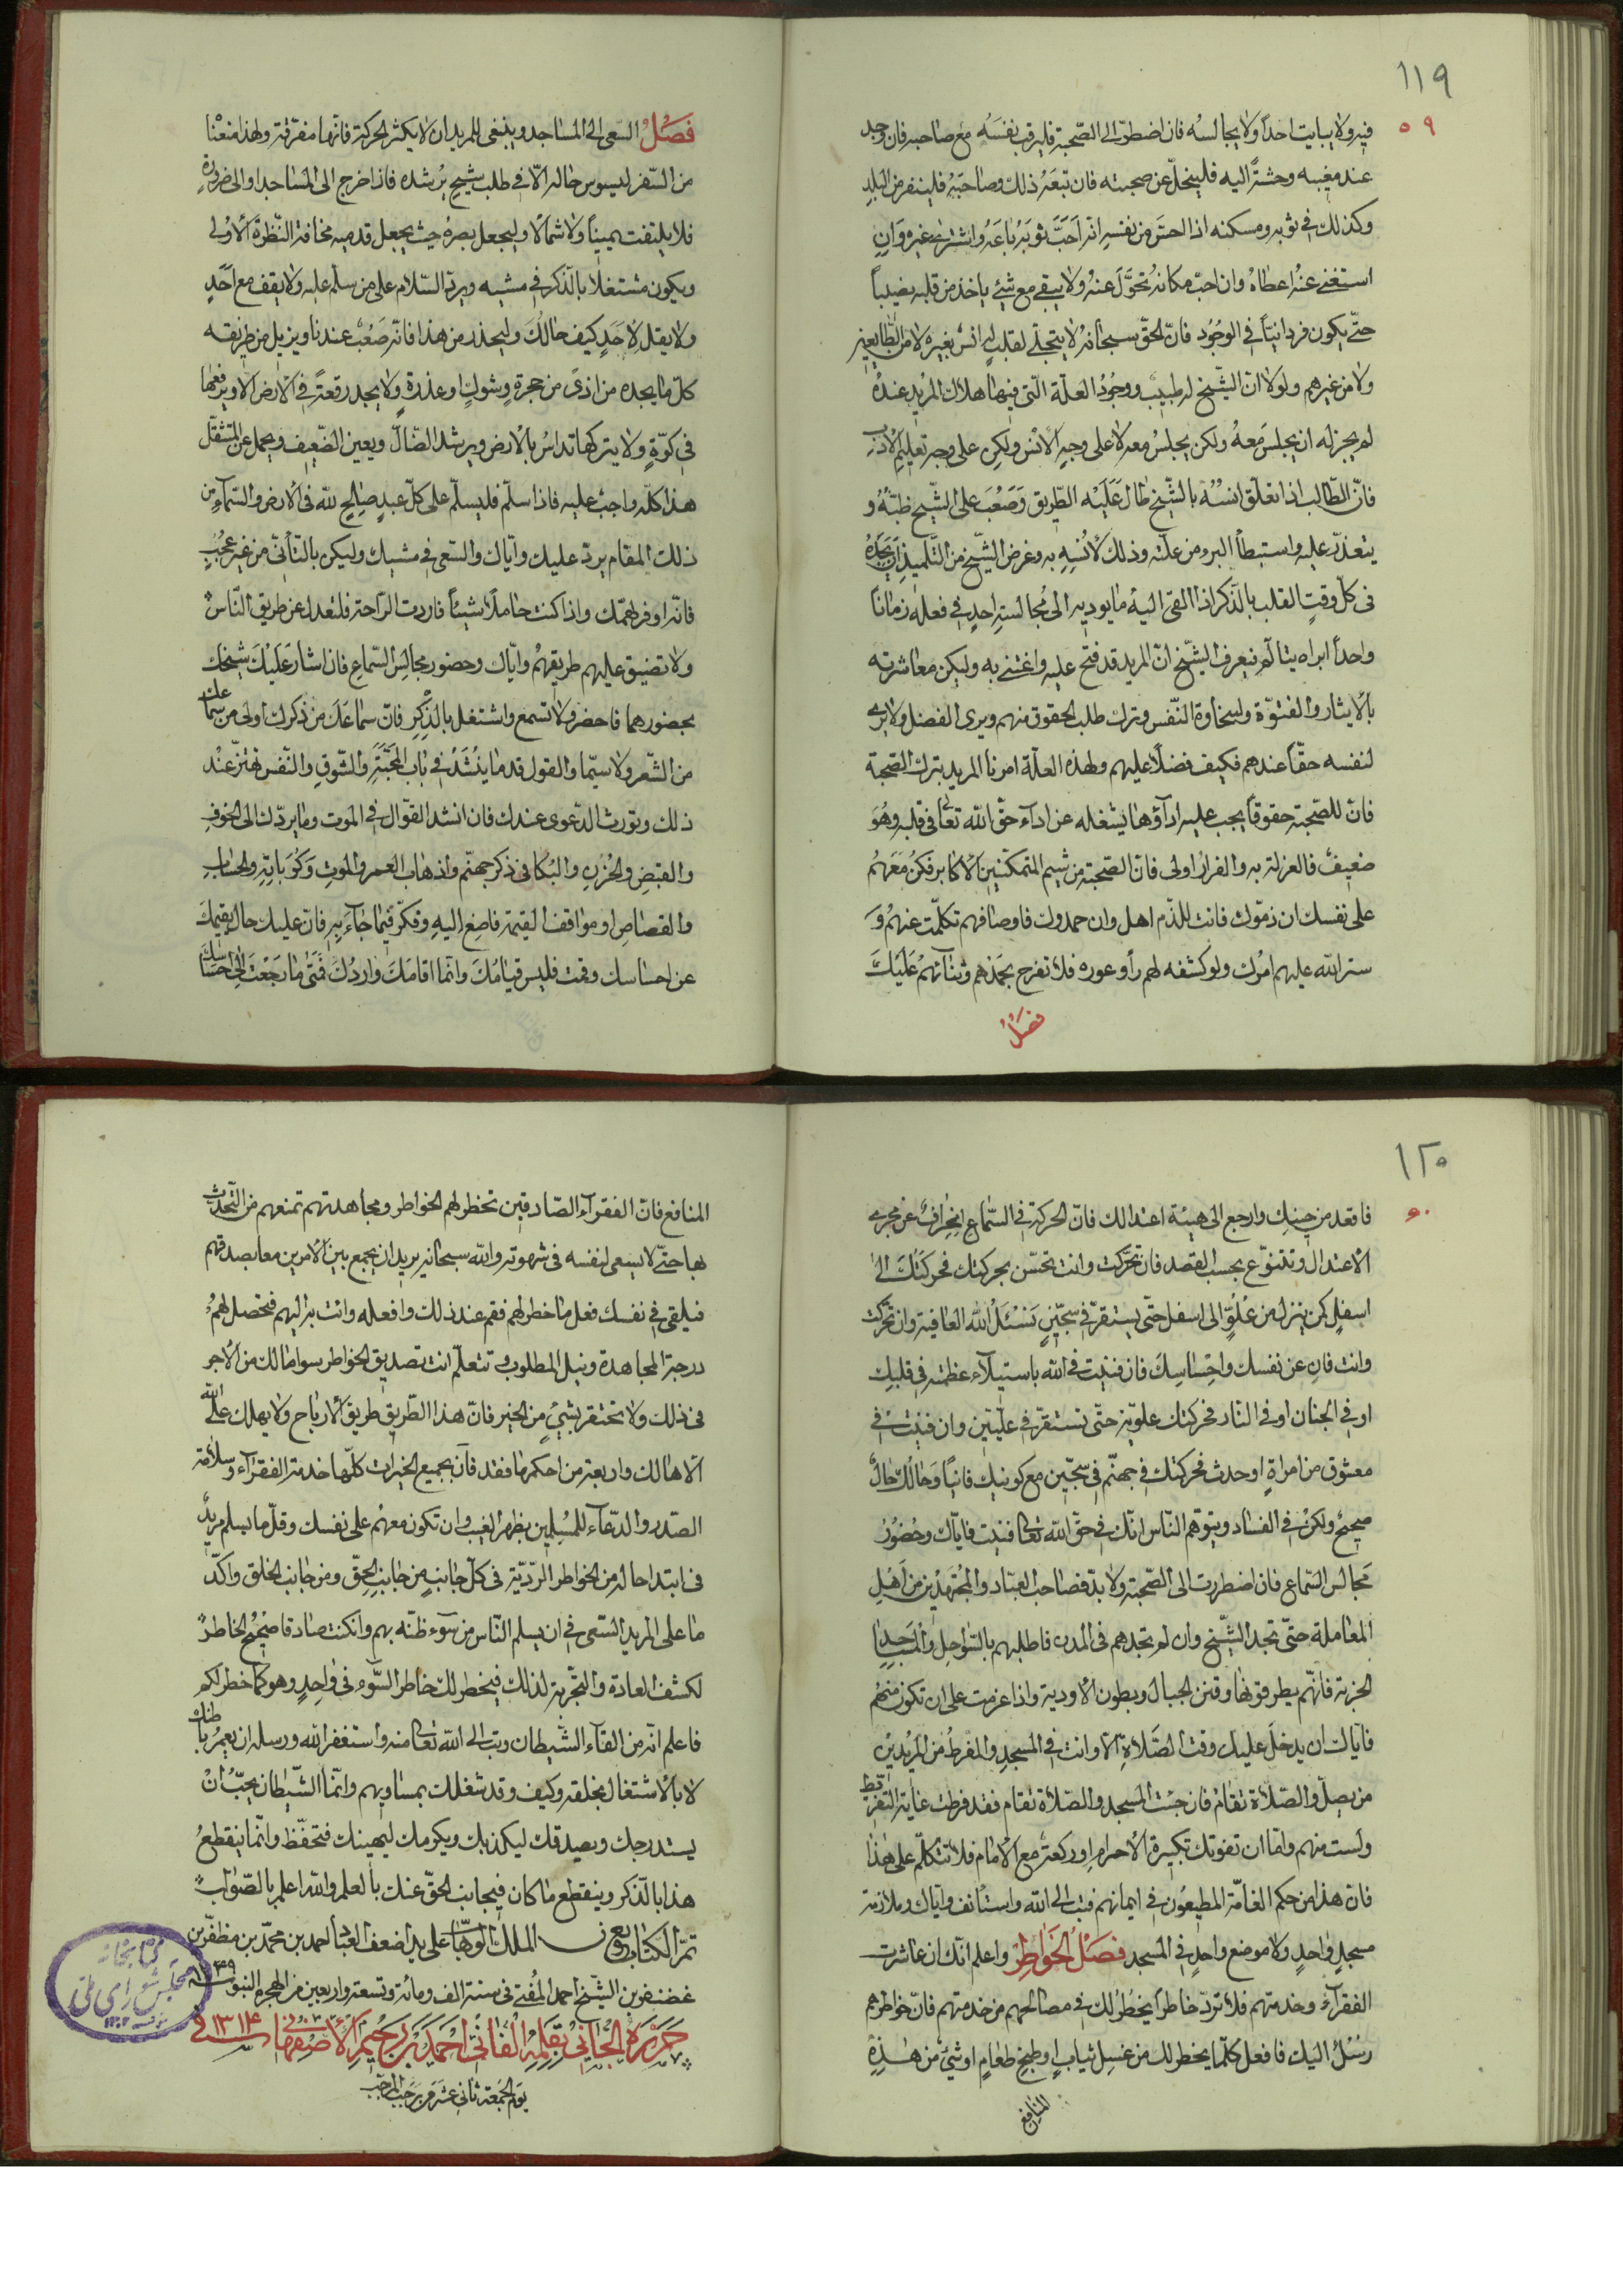 ١١٩
٥٩
فيه ولا يبايت احداً ولا يجالسه فان اضطرّ الى الصّحبة فليرقب نفسَه مع صاحبه فان وجد
عند مغيبه وحشةً اليه فليتخلّ عن صحبته فان تبعَهُ ذلك وصاحَبَهُ فلينفر من البلد
وكذلك في ثوبه ومسكنه اذا احسَّ من نفسه انه اَحَبَّ ثوبَهُ باعَهُ واشترى غيره وَاِن
استغنى عنْهُ اعطاهُ وان احبّ مكانَهُ تحوَّلَ عنهُ ولا يبقى مع شئٍ ياخذ من قلبه نصيباً
حتّى يكون فردانيّاً في الوجُوُد فانّ الحقّ سبحانهُ لا يتجلّى لقلبٍ له انس بغيره لا من الطّايعين
ولا من غيرهم ولولا انّ الشّيخ له طبيبٌ ووجُوُدُ العلّة الّتى فيها هلاك المُريد عندهُ
لم يجز له ان يجلسَ معهُ ولكن يجلسُ معه لا على وجهِ الاُنْس ولكِن على وجه تعليمِ الاُدبِ
فانّ الطّالب اذا تعلّق انسُهُ بالشّيخ طال عَلَيْه الطّريق وَصَعُبَ على الشّيخ طبّهُ و
يتعذّر عليه واستبطأ البرو من علّته وذلك لاُنسِه به وغرض الشّيخ من التّلميذِ ان يجده
في كلّ وقتٍ القلب بالذّكر اذا القى اليهُ ما يوديه الى مجالسةِ احدٍ في فعلهِ زماناً
واحداً ابراه يتألّم فيعرف الشّيخ انّ المريد قد فتح عليه واعتنى به وليكن معاشرته
بالايثار والفتوّة ولسخاوة النّفس وترك طلب الحقوق منهم ويرى الفضل ولا يرى
لنفسه حقّاً عندهم فكيف فضلاً عليهم ولهذه العلّة امرنا المريد بترك الصّحبة
فانّ للصّحبة حقوقاً يجب عليه اداؤها يشغله عن اداء حقّ الله تعالى في قلبه وهُوَ
ضعيفٌ فالعزلة به والفرار اولى فانّ الصّحبة من شيم المتمكّنينَ الاكابر فكن معَهُم
على نفسك ان ذمّوك فانت للذّم اهل وان حمدوك فاوصافهم تكلّمت عنهُم وَ
ستر الله عليهم امرك ولو كشفه لهم رأو عوره فلا تفرح بحمدهم وثنائهم عَلَيك
فصلُ
فَصلُ السّعى الى المساجد وينبغى للمريد ان لا يكثر الحركة فانّها مفرّقة ولهذا منعْنا
من السّفر لميسوس حاله الّا في طلب شيخٍ يرشده فاذا خرج الى المساجد او الى ضرورةٍ
فلا يلتفت يميناً ولا شمالاً وليجعل بصرهُ حيث يجعل قدميه مخافة النّظرة الاُولى
ويكون مشتغلا بالذّكر في مشيه ويردّ السّلام على من سلّم عليه ولا يقف مع احَدٍ
ولا يقل لاِحَدٍ كيف حالكَ وليحذر من هذا فانّه صَعْبٌ عندنا ويزيل من طريقه
كلّ ما يجده من اذىً من حجرة وشوكٍ او عذرةٍ ولا يجد رقعةً في الارض الا ويرفعها
في كوّةٍ ولا يتركها تداسُ بالارض ويرشد الضّالّ ويعين الضّعيف ويحمل عن المتثقّل
هذا كلّه واجبٌ عليه فاذا سلّم فليسلّم على كلّ عبدٍ صالحٍ لله في الارض والسّماء من
ذلك المقام يردّ عليك وايّاك والسّعى في مشيك وليكن بالتأنّي من غير عُجُبٍ
فانّه اوفر لهمّتك واذا كنت حاملاً شيئاً فاردت الرّاحة فلتعدل عن طريق النّاسُ
ولا تضيق عليهم طريقهُم وايّاك وحضور مجالس السّماعِ فان اشار عَلَيْكَ شيخك
بحضورهما فاحضر ولا تسمع واشتغل بالذِّكِر فانّ سماعَكَ من ذكرك اولى من سماعك
من الشّعر ولا سيّما والقول قد ما يُنشَدُ في باب المحبّةِ والشّوقِ والنّفس تهتزّ عنْد
ذلك وتورث الدّعوى عندك فان انشد القوّال في الموت وما يردّك الى الخوفِ
والقبضِ والحزنِ والبُكا في ذكر جهنّم واذهاب العمر والموتِ وكرَباتِه والحساب
والقصاصِ او مواقف القيمة فاصغ اِليهِ وفكّر فيما جاءَ به فان عليك حال يقيمكَ
عن احساسك وقمت فليس قيامُكَ وانّما اقامَكَ واردُكَ فَمَتى ما رَجَعْتَ الى احساسك
١٢٠
٦٠
فاقعد من حينِك وارجع الى هيئة اعتدالك فانّ الحركة في السّماعِ انحِرافٌ عن مجرى
الاعتدال وتتنوّع بحسب القصد فان تحرّكت وانت تحسّ بحركتك فحركَتُكَ الىٰ
اسفلٍ كمن ينزل من عُلُوٍّ الى اسفل حتّى يستقرّ في سجّينٍ نَسْئَلُ الله العافية وان تحرّكت
وانت فانٍ عن نفسك واحِساسِكَ فان فنيت في الله باستيلاء عظمته في قلبك
او في الجنان او في النّار فحركتك علويّة حتّى تستقرّ في علّيّين وان فنيت في
معشوق من امراةٍ او حدث فحركتك في جهنّم في سجّين مع كونك فانياً وَحالُك حالٌ
صحيحٌ ولكن في الفساد ويتوهّم النّاس انّك في حقّ الله تعالى فنيت فايّاك وحُضُوُرُ
مَجالس السّماع فان اضطررت الى الصّحبة ولا بدّ فصاحب العبّاد والمجتهدين من اَهْلِ
المعاملة حتّى تجد الشّيخ وان لم تجدهم في المدن فاطلبهم بالسّواحل والمساجِدِ
الخربة فانّهم يطرقونها وقنن الجبال وبطون الاودية واذا عزمت على ان تكون منهُم
فايّاك ان يدخلَ عليك وقت الصَّلاةِ الّا وانت في المسجدِ والمفرطُ من المُريديُن
من يصِلُ والصّلاة تقام فان جئت المسجد والصّلاة تقام فقد فرطت غاية التّفريط
ولست منهم وامّا ان تفوتك تكبيرة الاحرام او ركعة مع الامام فلا تتكلّم على هذا
فانّ هذا من حكم العامّة المطيعُون في ايمانهم فتب الى الله واستأنف وايّاك وملازمة
مسجدٍ واحدٍ ولا موضع واحدٍ في المسجد فصلُ الخواطِرُ واعلم انّك ان عاشرت
الفقرآءَ وخدمتهم فلا تردّ خاطراً يخطُرُ لك في مصالحهم من خدمتهم فانّ خواطرهم
رسُلُ اليك فافعل كلّما يخطر لك من غسل ثيابٍ او طبخِ طعامٍ او شئٍ من هٰذِهِ
المنافع
المنافع فانّ الفقرآء الصّادقين تخطر لهم الخواطر ومجاهدتهم تمنعهم من التّحدّث
بها حتّى لا يسعى لنفسه في شهوته والله سبحانه يريد ان يجمع بين الامرين معا بصدقهم
فيلقى في نفسك فعل ما خطر لهم فقم عند ذلك وافعله وانت به اليهم فتحصل لهمُ
درجة المجاهدة ونيل المطلوب وتتعلّم انت تصديق الخواطر سوا ما لك من الاجر
في ذلك ولا تحتقر بشئٍ من الخير فانّ هذا الطّريق طريق الارباح ولا يهلك على الله
الّا هالك واربعة من احكمها فقد فاز بجميع الخيرات كلّها خدمة الفقرآء وسلامة
الصّدر والدّعاء للمسلمين بظهر الغيب وان تكون معهُم على نفسك وقلّ ما يسلم مريدٌ
في ابتداحاله من الخواطر الرّديّة في كلّ جانبٍ من جانبِ الحقّ ومن جانب الخلق واكدّ
ما على المريد السّعى في ان يسلم النّاس من سوء ظنّه بهم وان كنت صادقا صَحُحَ الخاطرُ
لكشف العادة والتّجربة لذلك فيخطر لك خاطر السّوء في واحدٍ وهو كما خطر لكم
فاعلم انّه من القآء الشّيطان وتب الى الله تعالى منه واستغفر الله ورسله ان يعمُرُ باطنك
لا بالاشتغال بخلقه وكيف وقد شغلك بمساويهم وانّما الشّيطان يحبّ انْ
يستدرجك ويصدقك ليكذبك ويكرمك ليهينك فتحفّظ وانّما ينقطعُ
هذا بالذّكر وينقطع ما كان فيجانب الحقّ عنك بالعلم والله اعلم بالصّوابُ
تمّ الكتاب بعون الملك الوهّاب على يد اضعف العباد احمد بن محمّد بن مظفّر بن
غضنفر بن الشّيخ احمد المُفتى في سنة الف ومائة وتسعة واربعين من الهجرة النبويّة ١١٤٩
حَرّرَهُ الجاني بقلمِهِ الفاني احمَدَ بن رحيم الاُصفهاني في سنة ١٣١٤
يوم الجمعة ثاني عشر من رجب المرجّب
كتابخانه
مجلس شورای ملّی